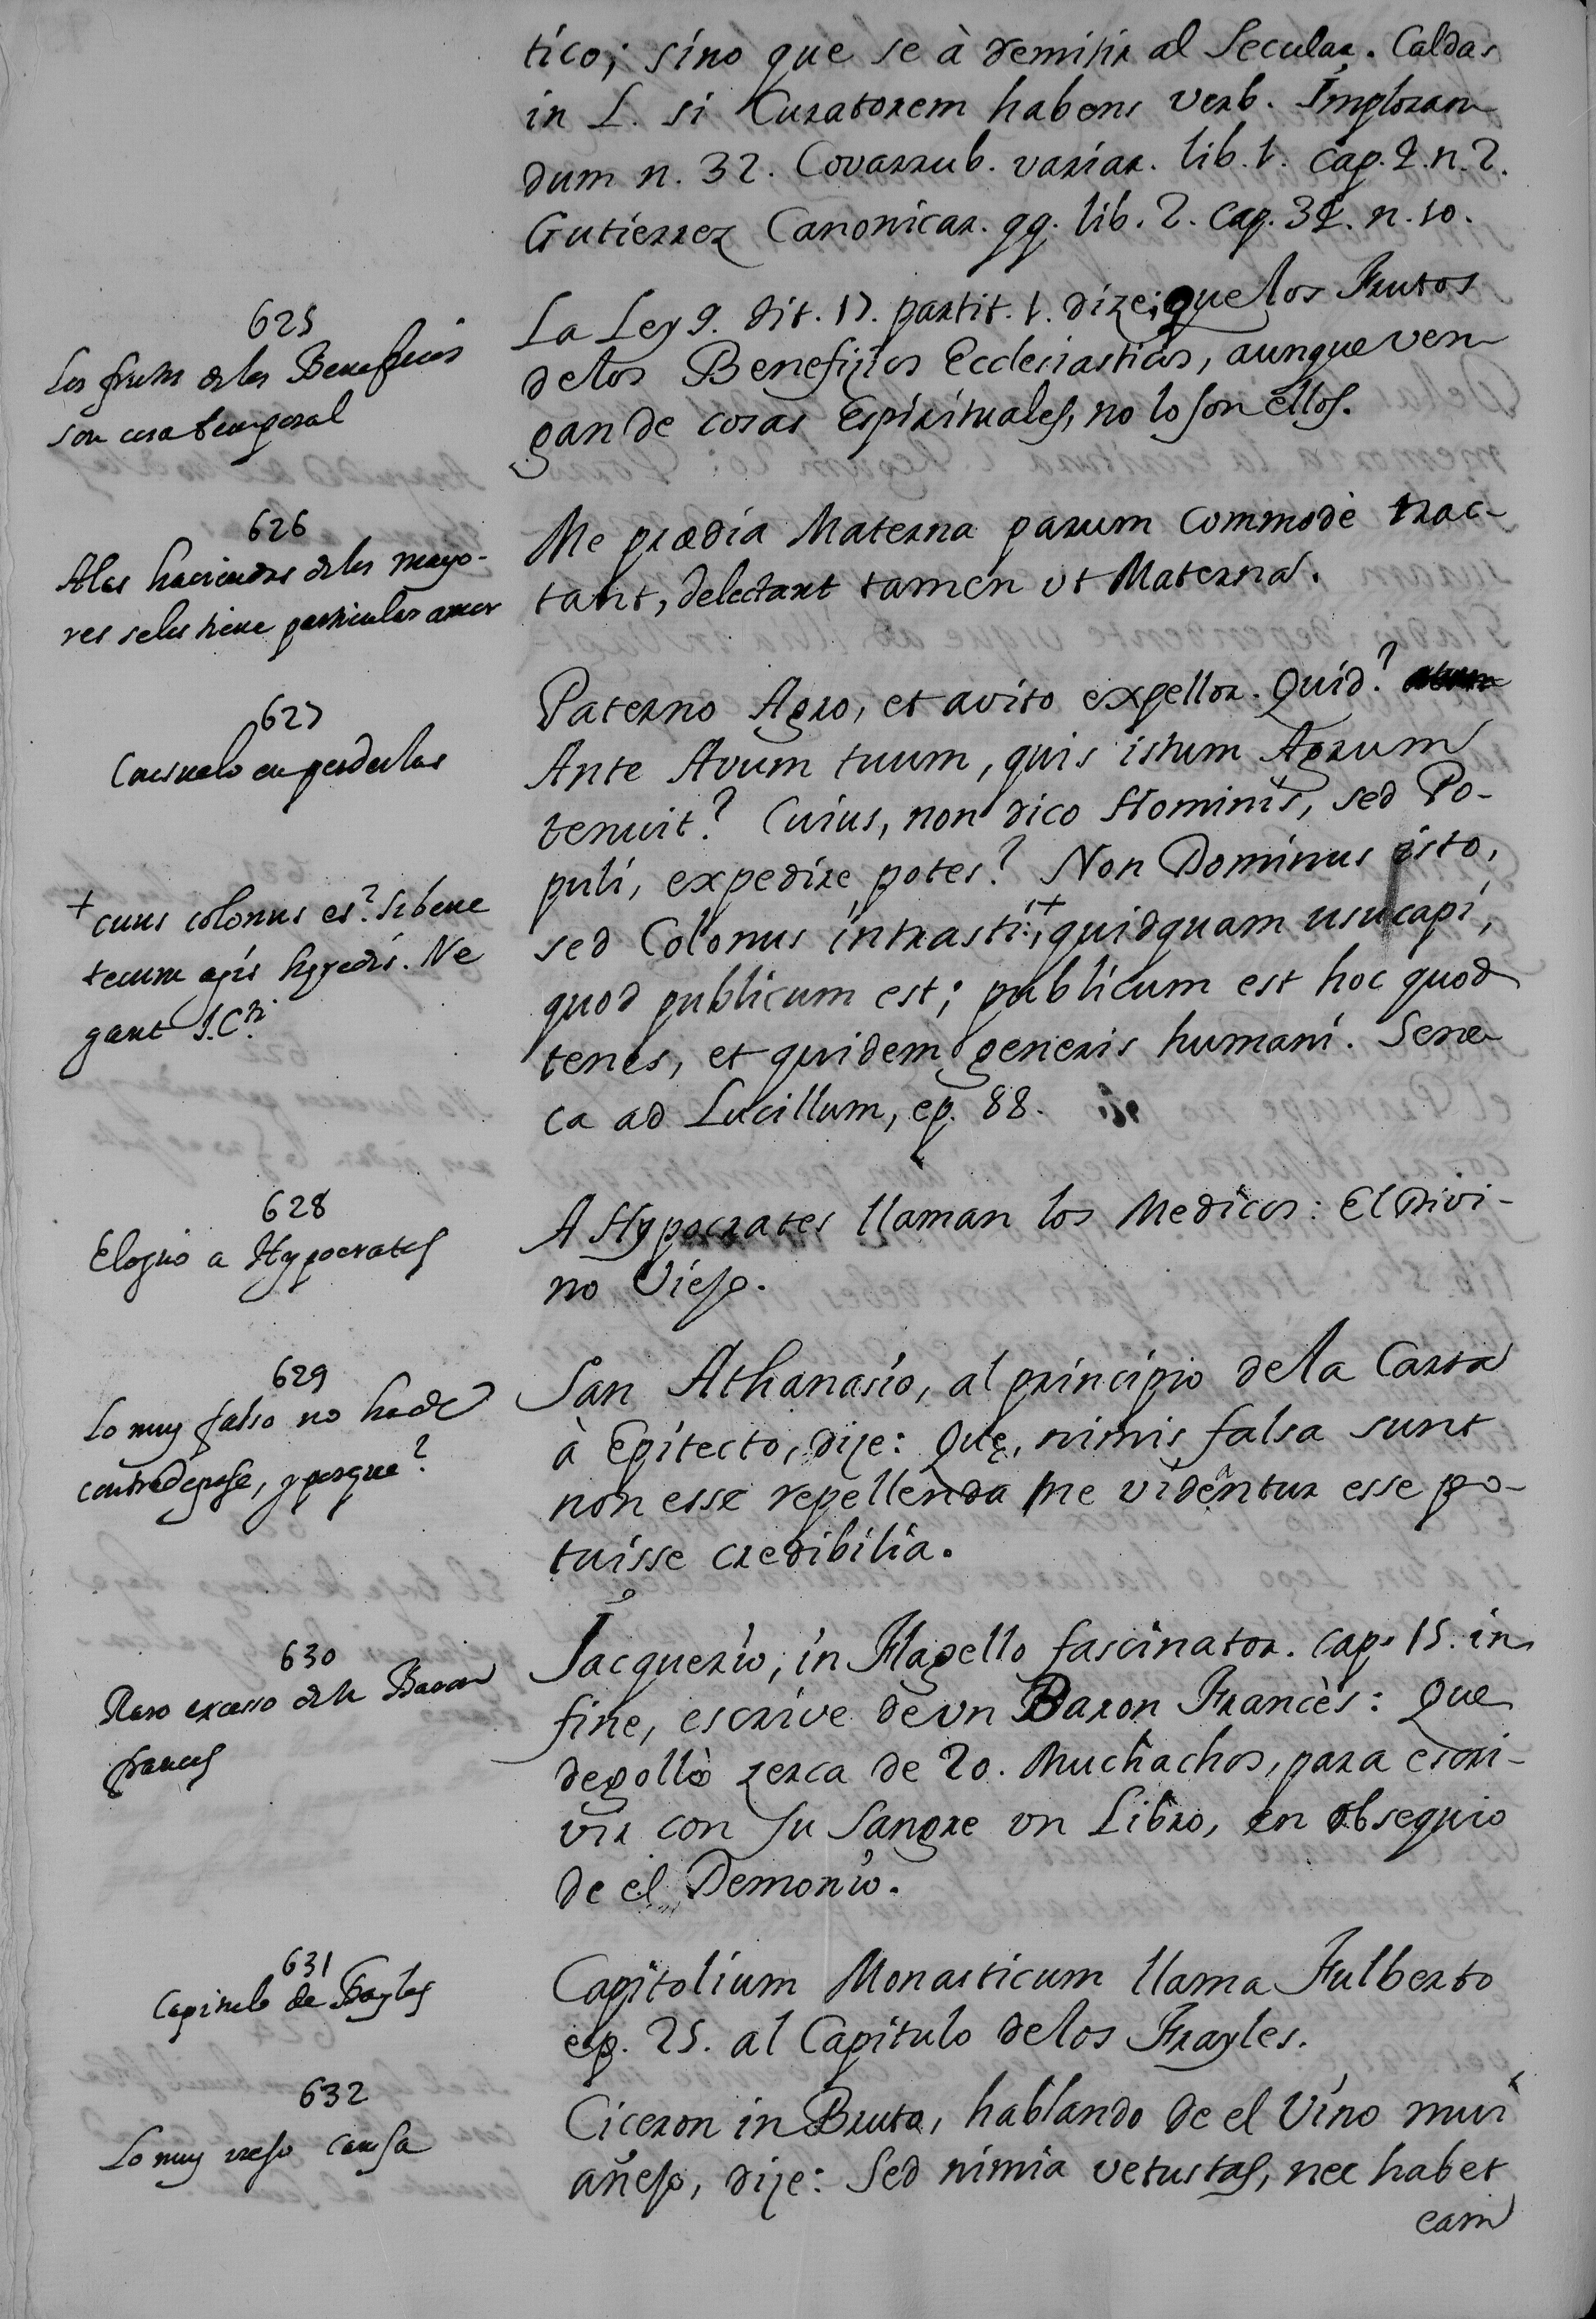 tico; sino que se à remitir al Secular. Caldas
in L. si Curatorem habens verb. Imploran
dum n. 32. Covarrub. variar. lib. 1. cap. 2. n. 2.
Gutierrez Canonicar. qq. lib. 2. cap. 32. n. 10.
625
Los frutos delos Beneficios
son cosa temporal
La Ley 9. tit. 17. partit. 1. dize; que los Frutos
delos Benefizios Ecclesiasticos, aunque ven
gan de cosas Espirituales, no lo son ellos.
626
A las haciendas delos mayo-
res seles tiene particular amor
Me prædia Materna parum commodè trac-
tant, delectant tamen ut Materna.
627
Consuelo en perderlas
Paterno Agro, et avito expellor. Quid?
Ante Avum tuum, quis istum Agrum
tenuit? Cuius, non dico Hominis, sed Po-
puli, expedire potes? Non Dominus isto,
sed Colonus intrasti:+ quidquam usucapi,
quod publicum est; publicum est hoc quod
tenes, et quidem generis humani. Sene
ca ad Lucillum, ep. 88.
+ cuius colonus es? Si bene
tecum agis hæredis. Ne
gant J.Cti.
628
Elogio a Hypocrates
A Hypocrates llaman los Medicos: El Divi-
no Viejo.
629
Lo muy falso no ha de
contradezirse, y porque?
San Athanasio, al principio de la Carta
à Epitecto, dije: Quę, nimis falsa sunt
non esse repellenda ne videantur esse po-
tuisse credibilia.
630
Raro exceso de un Baron
frances
Jacquerio, in Flagello fascinator. cap. 15. in
fine, escrive de un Baron Francès: Que
degollò zerca de 20. Muchachos, para escri-
vir con su Sangre un Libro, en obsequio
de el Demonio.
631
Capitulo de Frayles
Capitolium Monasticum llama Fulberto
ep. 25. al Capitulo delos Frayles.
632
Lo muy viejo cansa
Ciceron in Bruto, hablando de el Vino mui
añejo, dije: Sed nimia vetustas, nec habet
eam